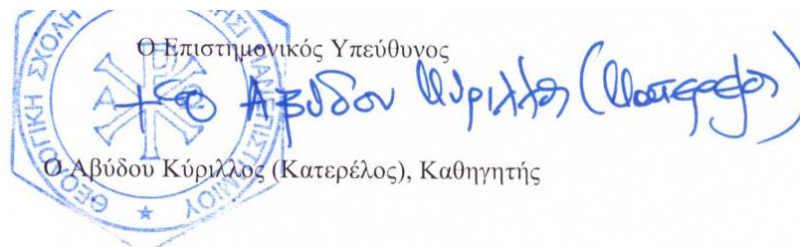 Ο Επιστημονικός Υπεύθυνος
+ ὁ Ἀβύδου Κύριλλος (Κατερέλος)
Ο Αβύδου Κύριλλος (Κατερέλος), Καθηγητής
ΘΕΟΛΟΓΙΚΗ ΣΧΟΛΗ
ΠΑΝΕΠΙΣΤΗΜΙΟΥ